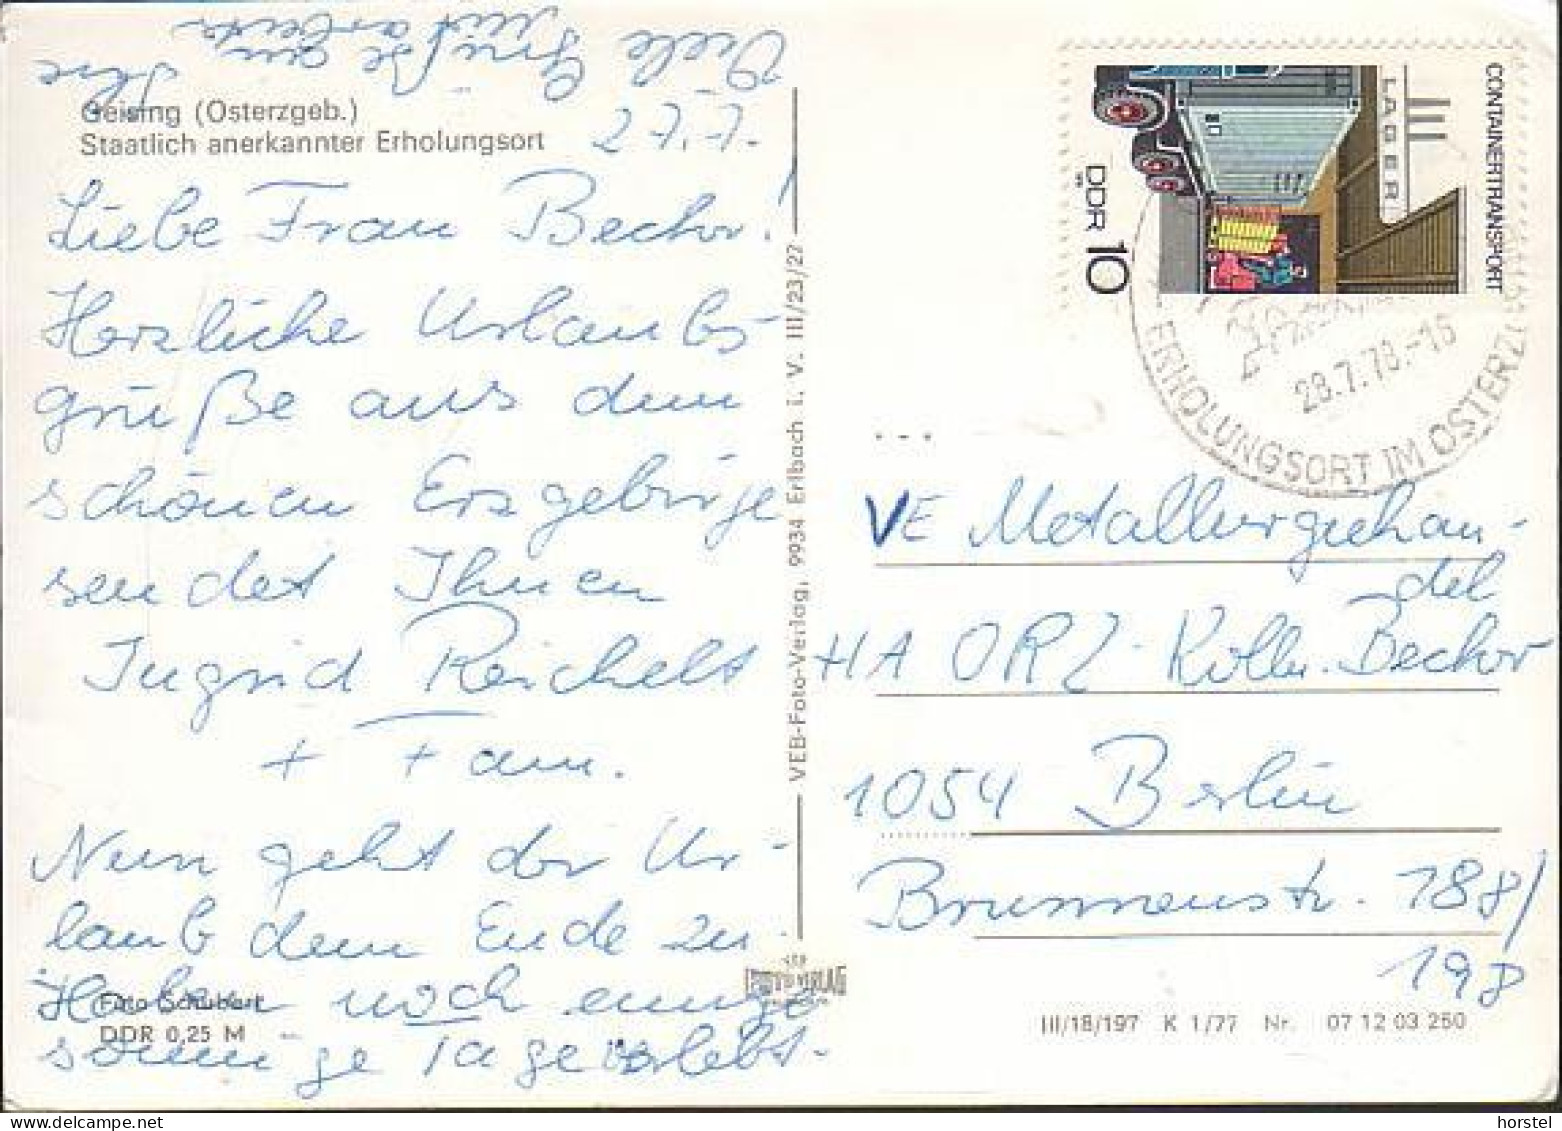 Viele Grüße an
Ihre Mitarbeiter
Geising (Osterzgeb.)
Staatlich anerkannter Erholungsort
27.7.
Liebe Frau Becher!
Herzliche Urlaubs-
grüße aus dem
schönen Erzgebirge
sendet Ihnen
Ingrid Reichelt
+ Fam.
Nun geht der Ur-
laub dem Ende zu.
Haben noch einige
sonnige Tage erlebt.
Foto Schubert
DDR 0,25 M
VEB-Foto-Verlag, 9934 Erlbach i. V. III/23/27
FOTO-VERLAG
CONTAINERTRANSPORT
LAGER
DDR 10
28.7.78.-16
ERHOLUNGSORT IM OSTERZ
VE Metallurgiehan-
del
HA ORZ-Kolln. Becher
1054 Berlin
Brunnenstr. 188/
198
III/18/197 K 1/77 Nr. 07 12 03 250